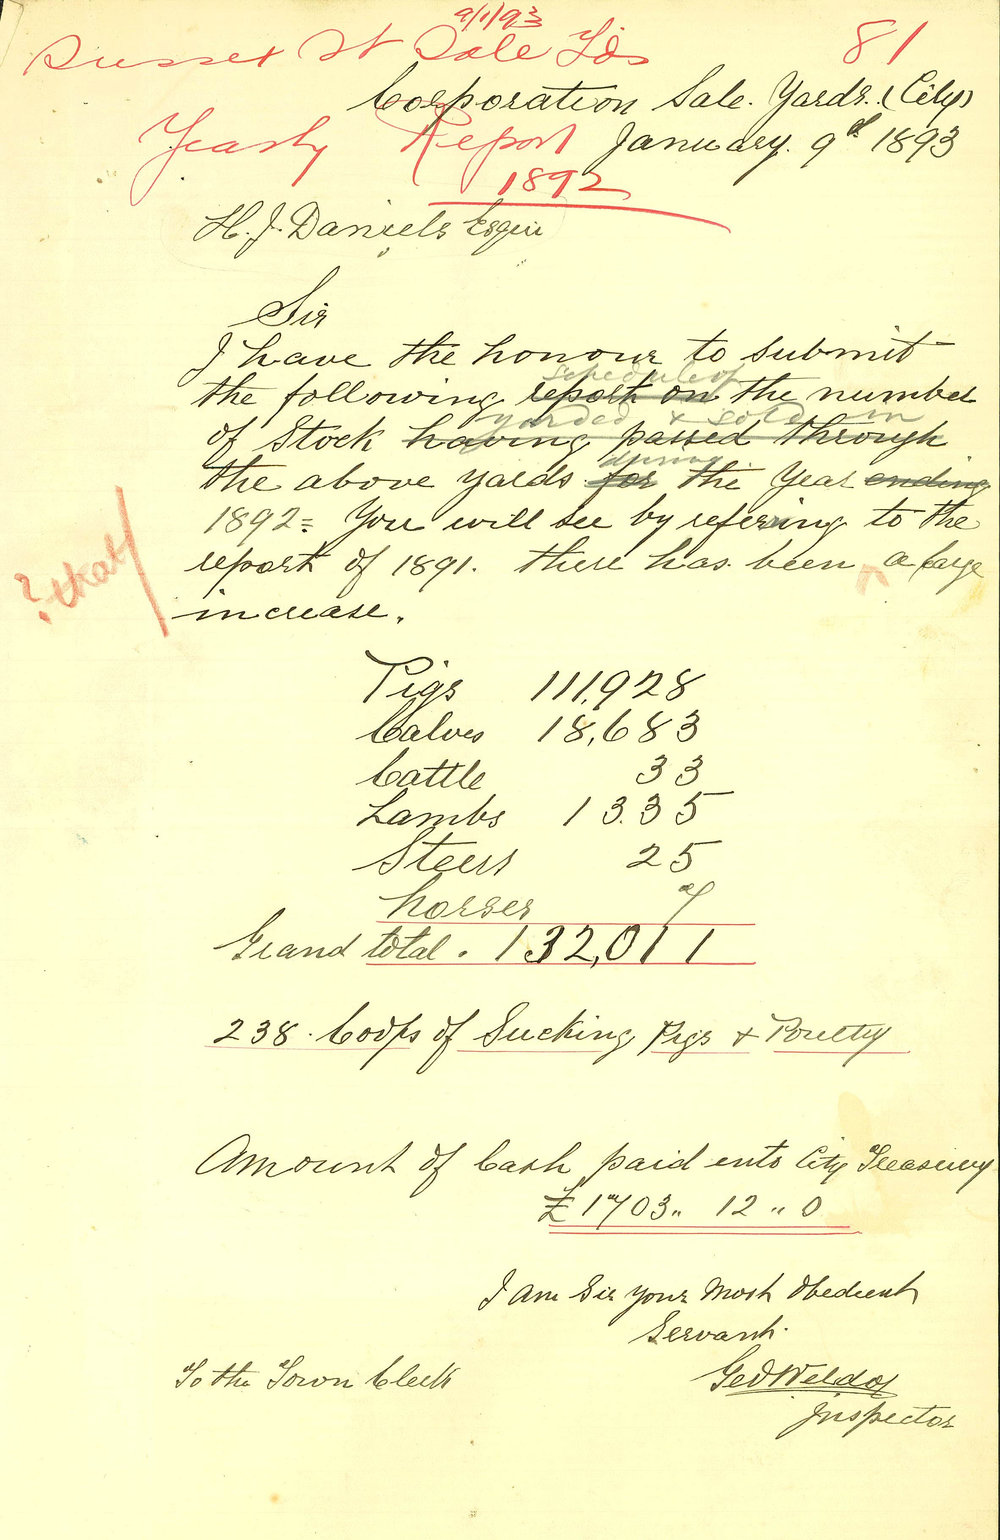 9/1/93
Sussex St Sale Yds
81
Corporation Sale Yards. (City)
Yearly Report
January. 9th 1893
1892
H. J. Daniels Esqu
Sir
I have the honour to submit
schedule of
the following report on the number
yarded & sold in
of Stock having passed through
during
the above yards for the Year ending
1892= You will see by refering to the
report of 1891. there has been a large
? what
increase.
Pigs 111,928
Calves 18,683
Cattle 33
Lambs 1335
Steers 25
horses 7
Grand total. 132,011
238. Coops of Sucking Pigs & Poultry
Amount of Cash paid into City Treasury
£1703,, 12 ,, 0
I am Sir your Most Obedient
Servant.
To the Town Clerk
Geo
Inspector